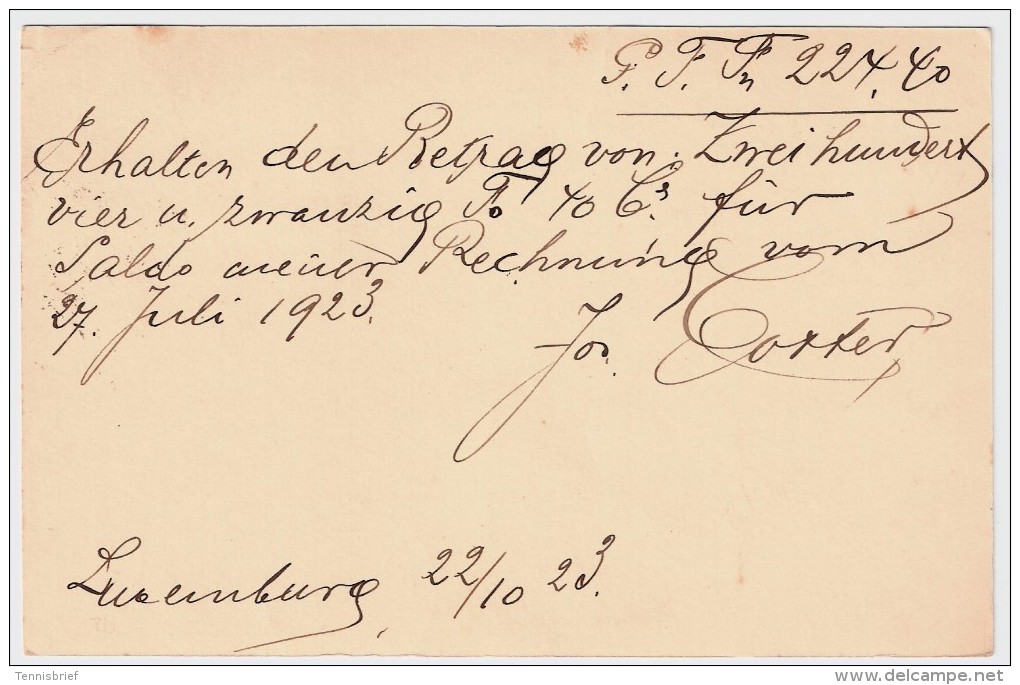 P. F. Fr 224.40
Erhalten den Betrag von: Zweihundert
vier u. zwanzig Fr 40 Cs. für
Saldo meiner Rechnung vom
27. Juli 1923.
Jos.
Luxemburg, 22/10 23.
Tennisbrief
delcampe.net